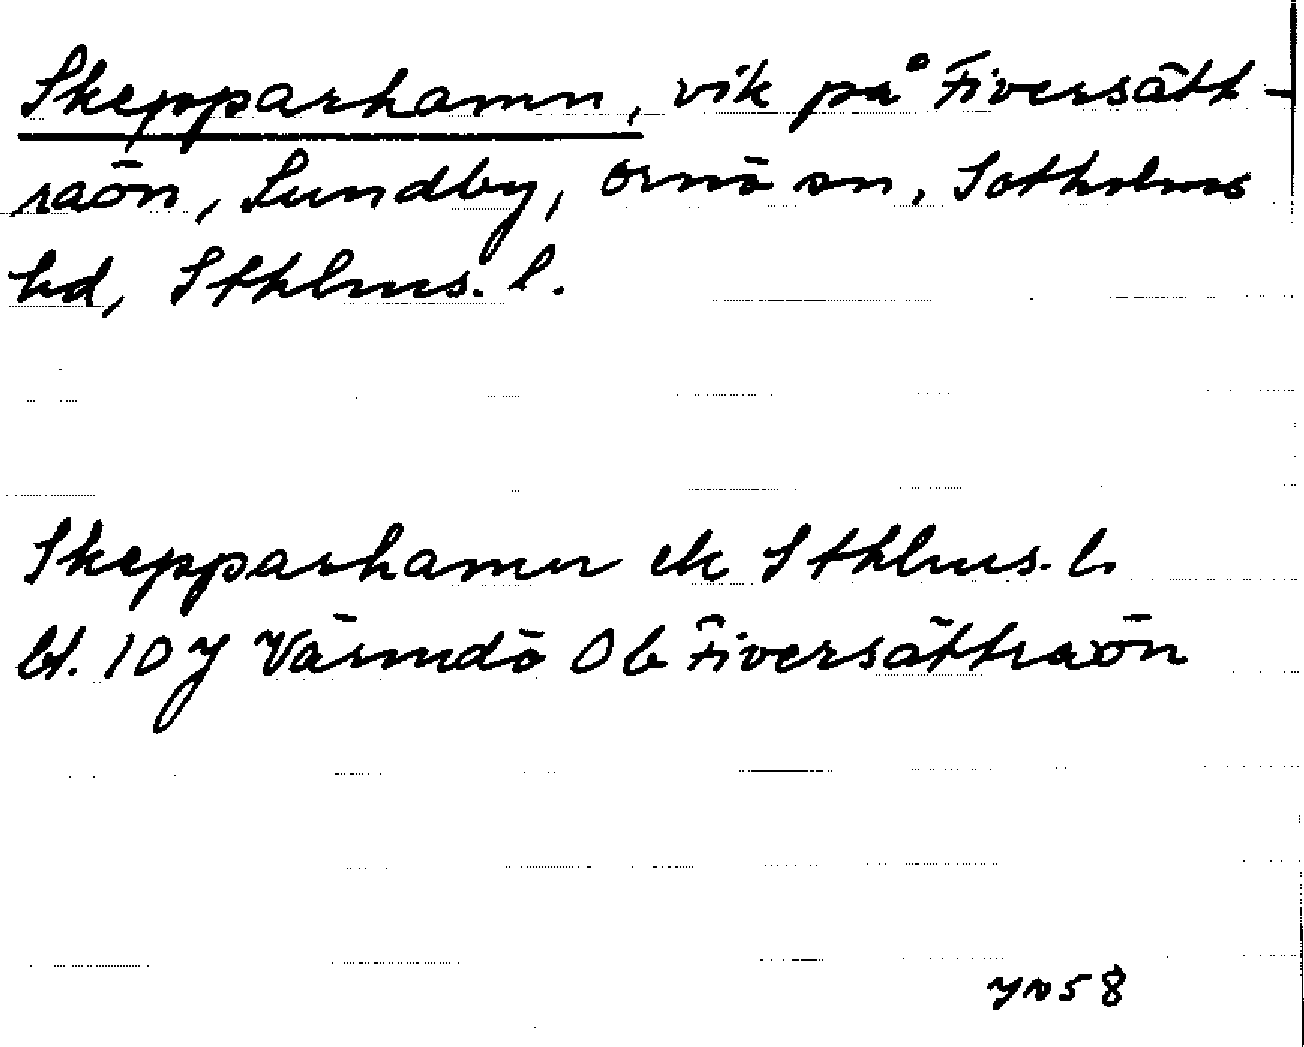 Skepparhamn, vik på Fiversätt-
raön, Lundby, Ornö sn, Sotholms
hd, Sthlms. l.
Skepparhamn ek Sthlms. l.
bl. 10J Värmdö Ob Fiversättraön
58